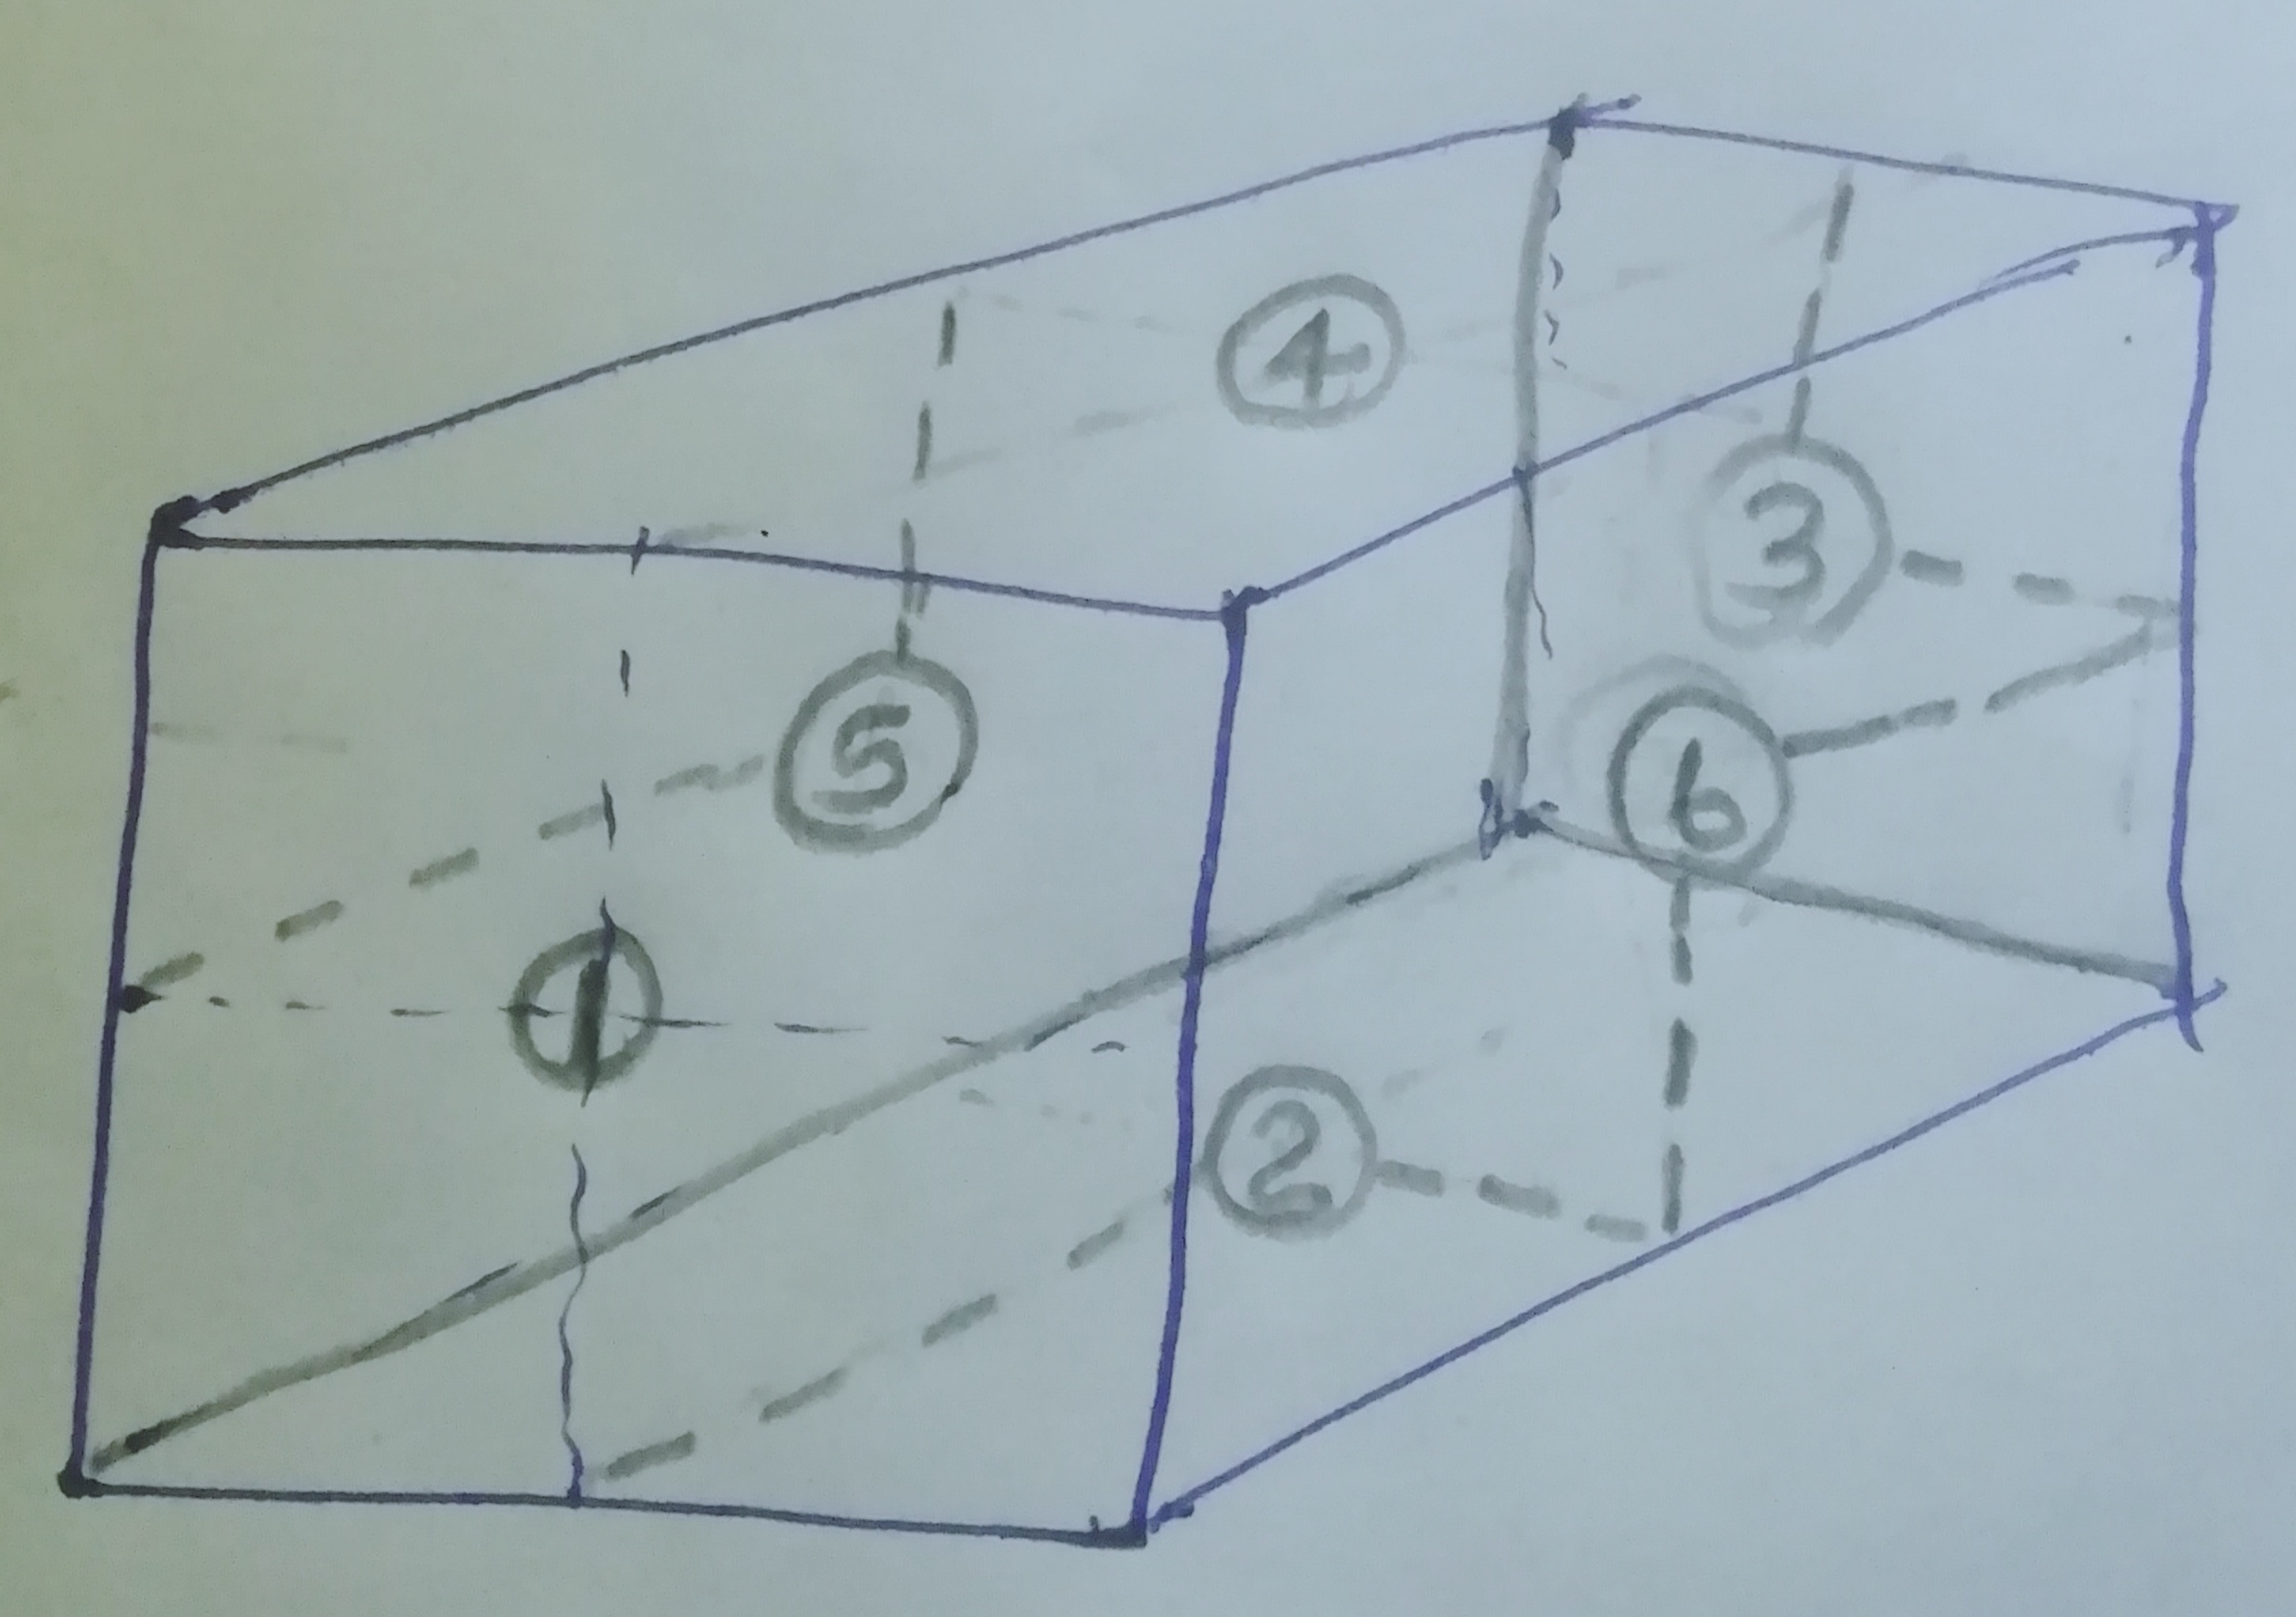 4
3
5
6
1
2